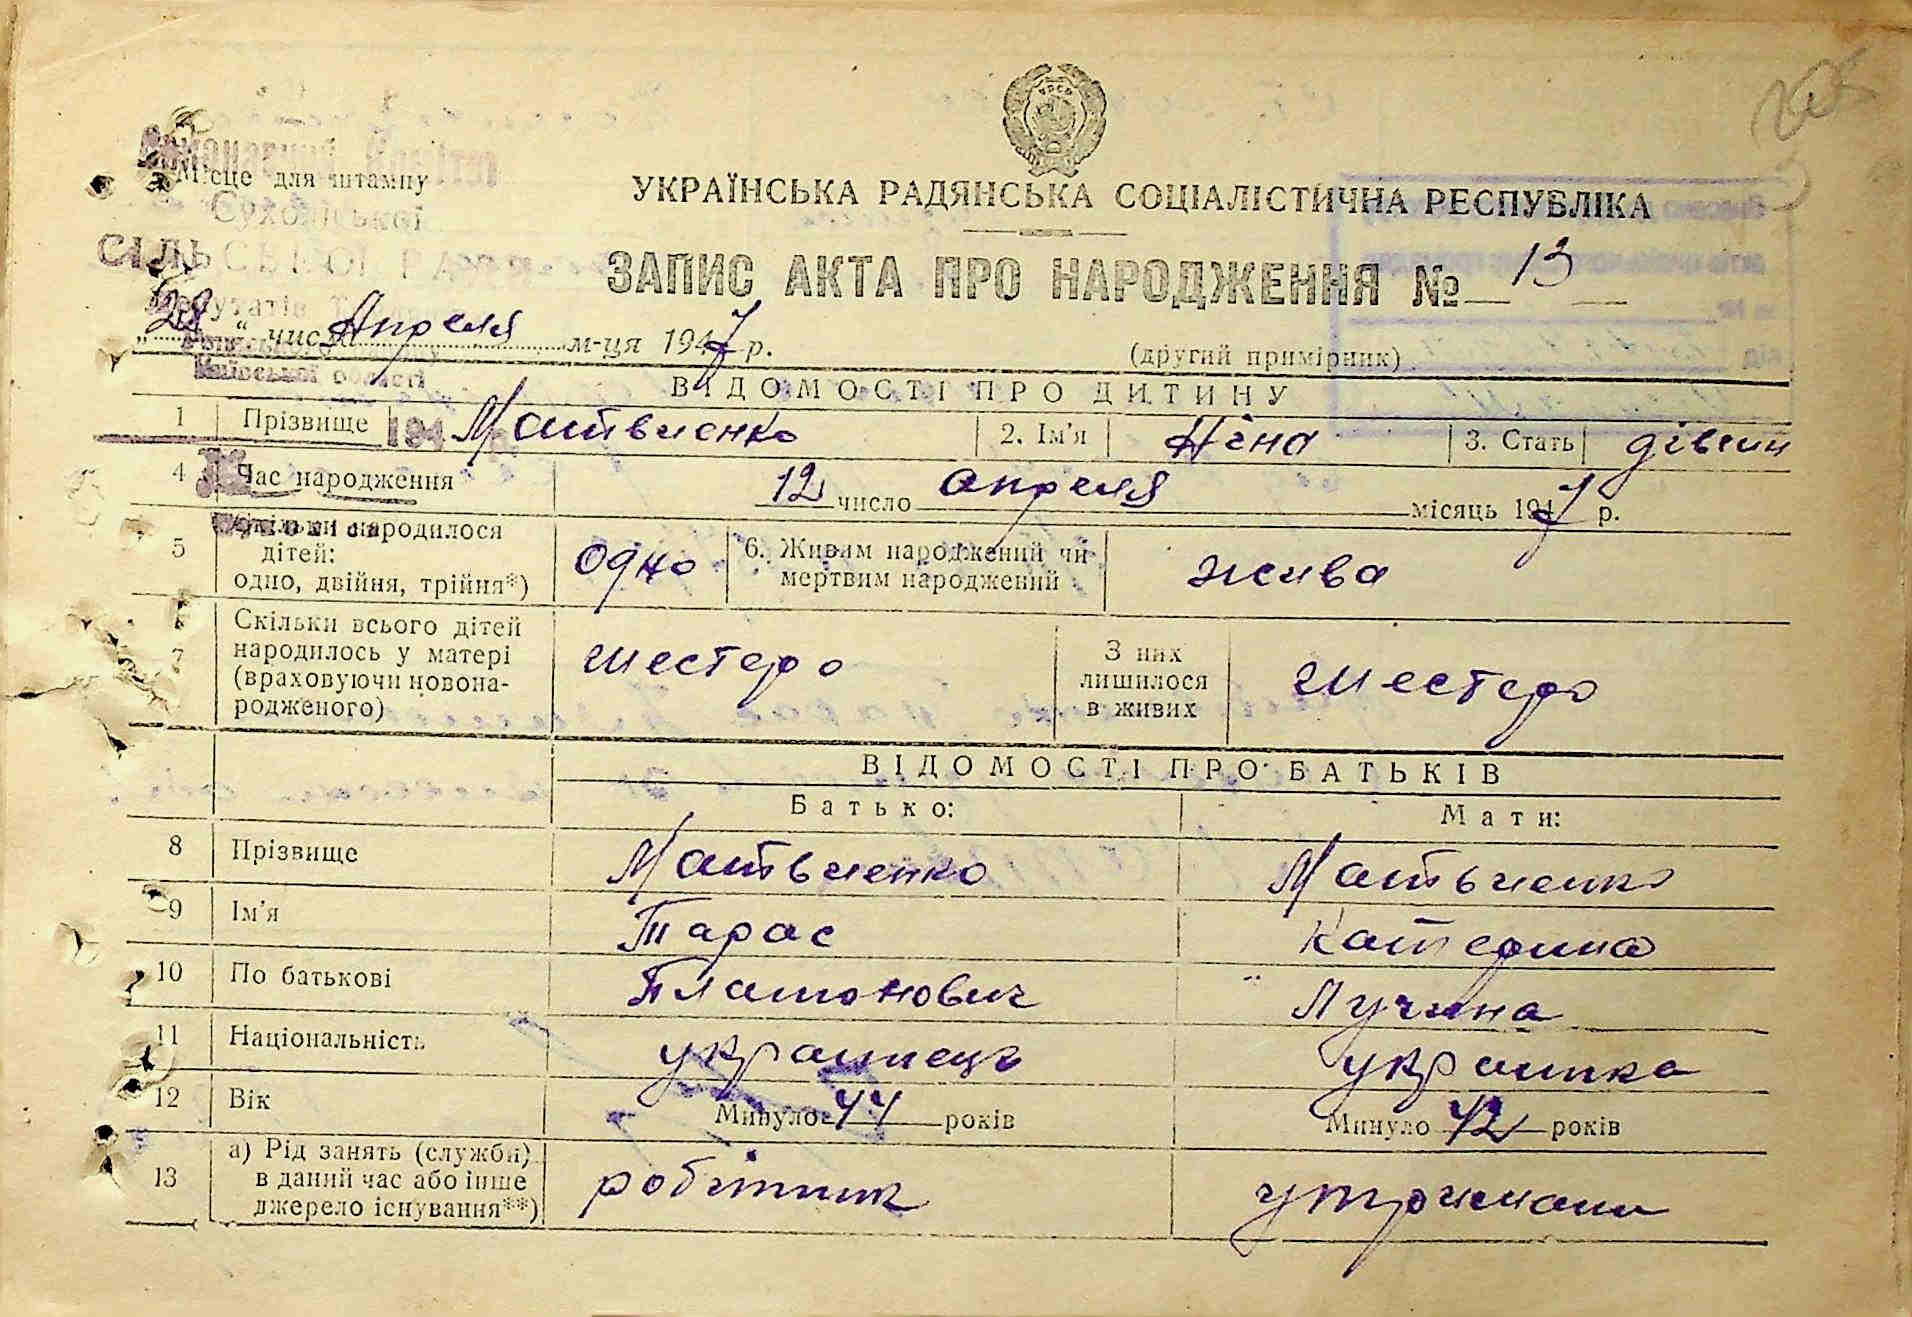 УРСР
Виконавчий Комітет
Місце для штампу
Сухоліської
СІЛЬСЬКОЇ РАДИ
Депутатів
Київської області
194
УКРАЇНСЬКА РАДЯНСЬКА СОЦІАЛІСТИЧНА РЕСПУБЛІКА
ЗАПИС АКТА ПРО НАРОДЖЕННЯ № 13
„28“ числа Апреля м-ця 1947 р.
(другий примірник)
ВІДОМОСТІ ПРО ДИТИНУ
1 Прізвище Матвиенко 2. Ім'я Ніна 3. Стать дівчин
4 Час народження 12 число апреля місяць 1947 р.
5 Скільки народилося дітей: одно, двійня, трійня*) одно 6. Живим народжений чи мертвим народжений жива
7 Скільки всього дітей народилось у матері (враховуючи новонародженого) шестеро З них лишилося в живих шестеро
ВІДОМОСТІ ПРО БАТЬКІВ
Батько: Мати:
8 Прізвище Матвиенко Матвиенко
9 Ім'я Тарас Катерина
10 По батькові Платонович Лучина
11 Національність украинець украинка
12 Вік Минуло 44 років Минуло 42 років
13 а) Рід занять (служби) в даний час або інше джерело існування**) робітник утриман